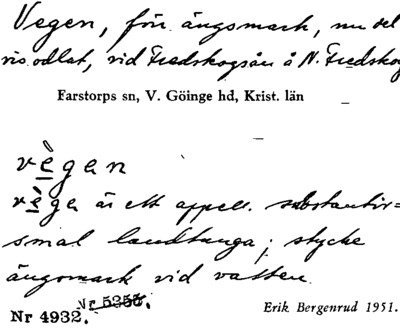 Vegen, förr ängsmark, nu del
vis odlat, vid Fredskogsån å N. Fredskog
Farstorps sn, V. Göinge hd, Krist. län
vègan
vèga är ett appell. substantiv=
smal landtunga; stycke
ängsmark vid vatten.
Nr 5350.
Nr 4932.
Erik Bergenrud 1951.